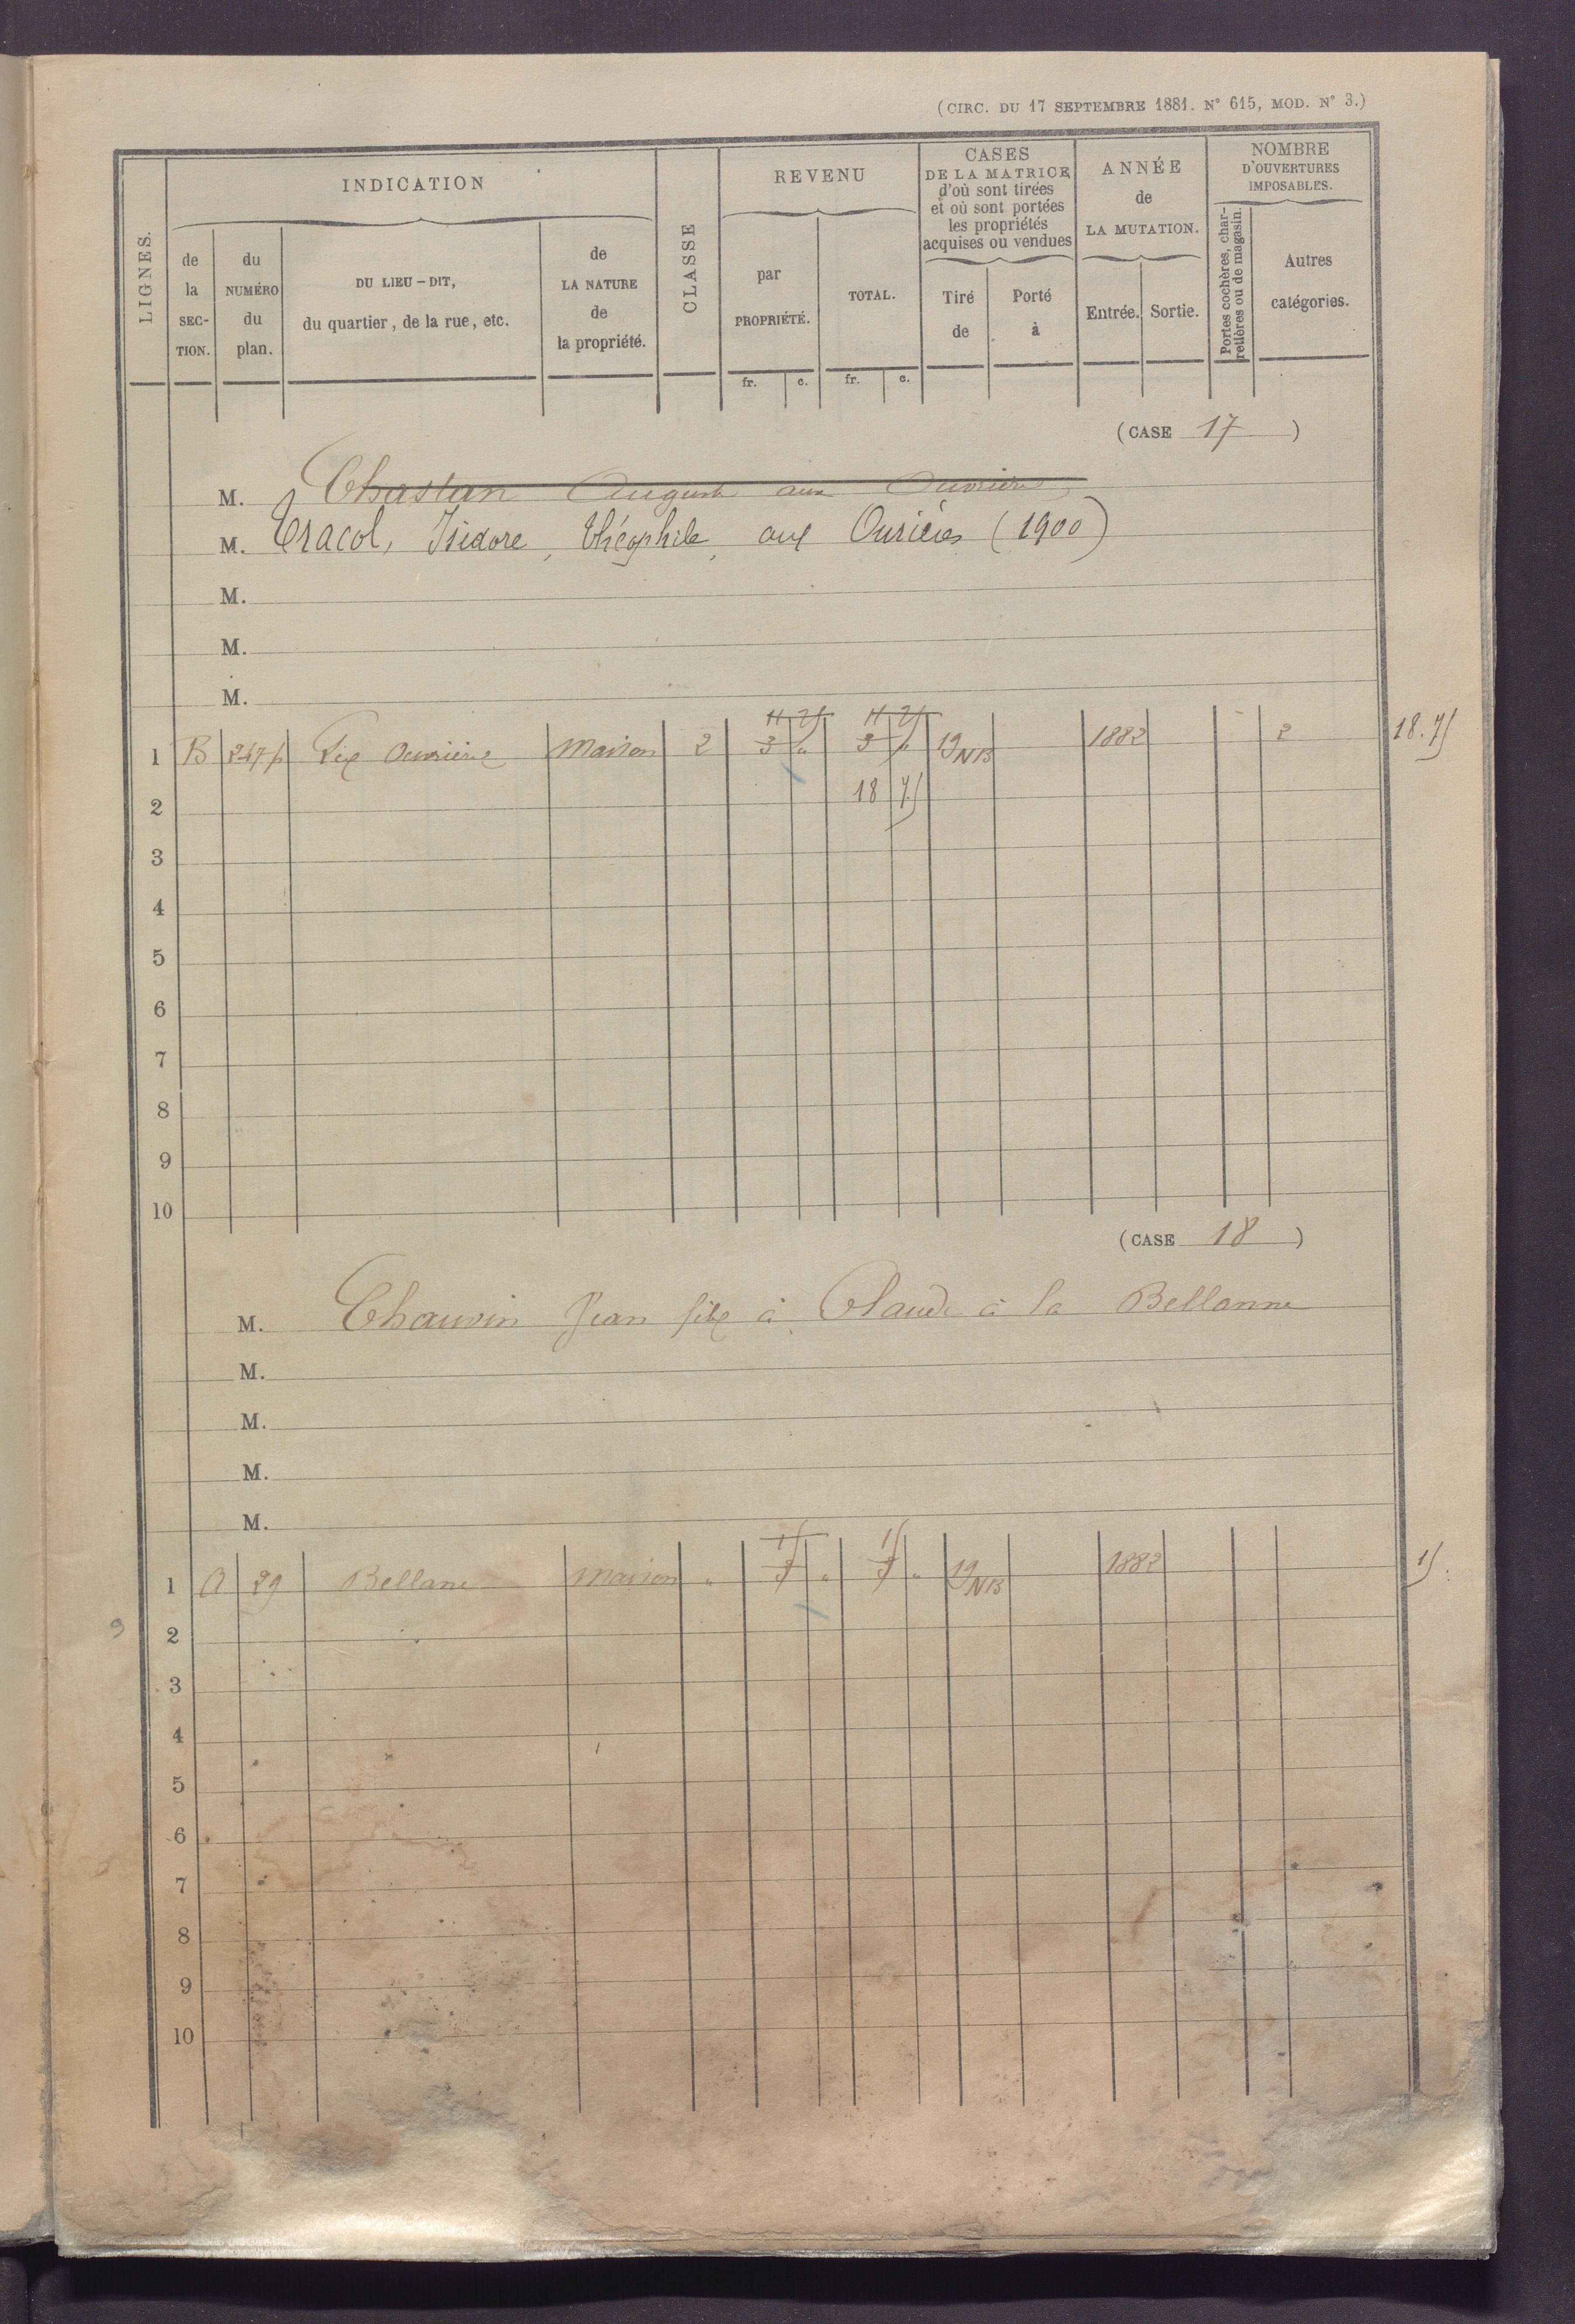 (CIRC. DU 17 SEPTEMBRE 1881. N° 615, MOD. N° 3.)
LIGNES.
INDICATION
de la SECTION.
du NUMÉRO du plan.
DU LIEU-DIT, du quartier, de la rue, etc.
de LA NATURE de la propriété.
CLASSE
REVENU
par PROPRIÉTÉ.
TOTAL.
fr. c. fr. c.
CASES DE LA MATRICE d'où sont tirées et où sont portées les propriétés acquises ou vendues
Tiré de
Porté à
ANNÉE de LA MUTATION.
Entrée. Sortie.
NOMBRE D'OUVERTURES IMPOSABLES.
Portes cochères, charretières ou de magasin.
Autres catégories.
(CASE 17)
M. Chastan Auguste aux
M. Tracol, Isidore, théophile, aux Ourières (1900)
M.
M.
M.
11 25 11 25
1 B 247 p Maison 2 3 " 3 " 19 NB 1882 2 18.75
2 18 75
3
4
5
6
7
8
9
10
(CASE 18)
M. Chauvin Jean fils à Claude à la Bellanne
M.
M.
M.
M.
15 15
1 A 29 Bellane Maison " " " 19 NB 1882 15.
2
3
4
5
6
7
8
9
10